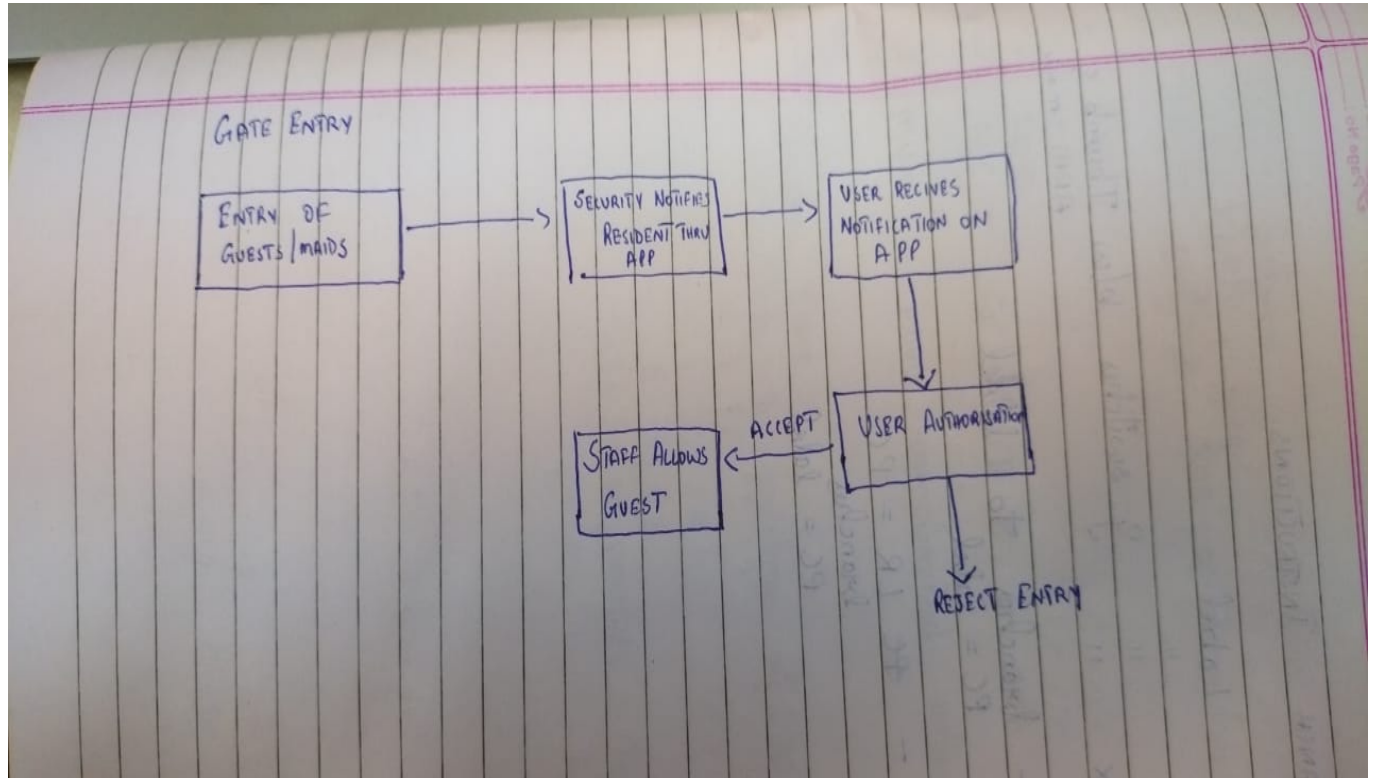 GATE ENTRY
ENTRY OF
GUESTS/MAIDS
SECURITY NOTIFIES
RESIDENT THRU
APP
USER RECINES
NOTIFICATION ON
APP
USER AUTHORISATION
ACCEPT
STAFF ALLOWS
GUEST
REJECT ENTRY
Page No